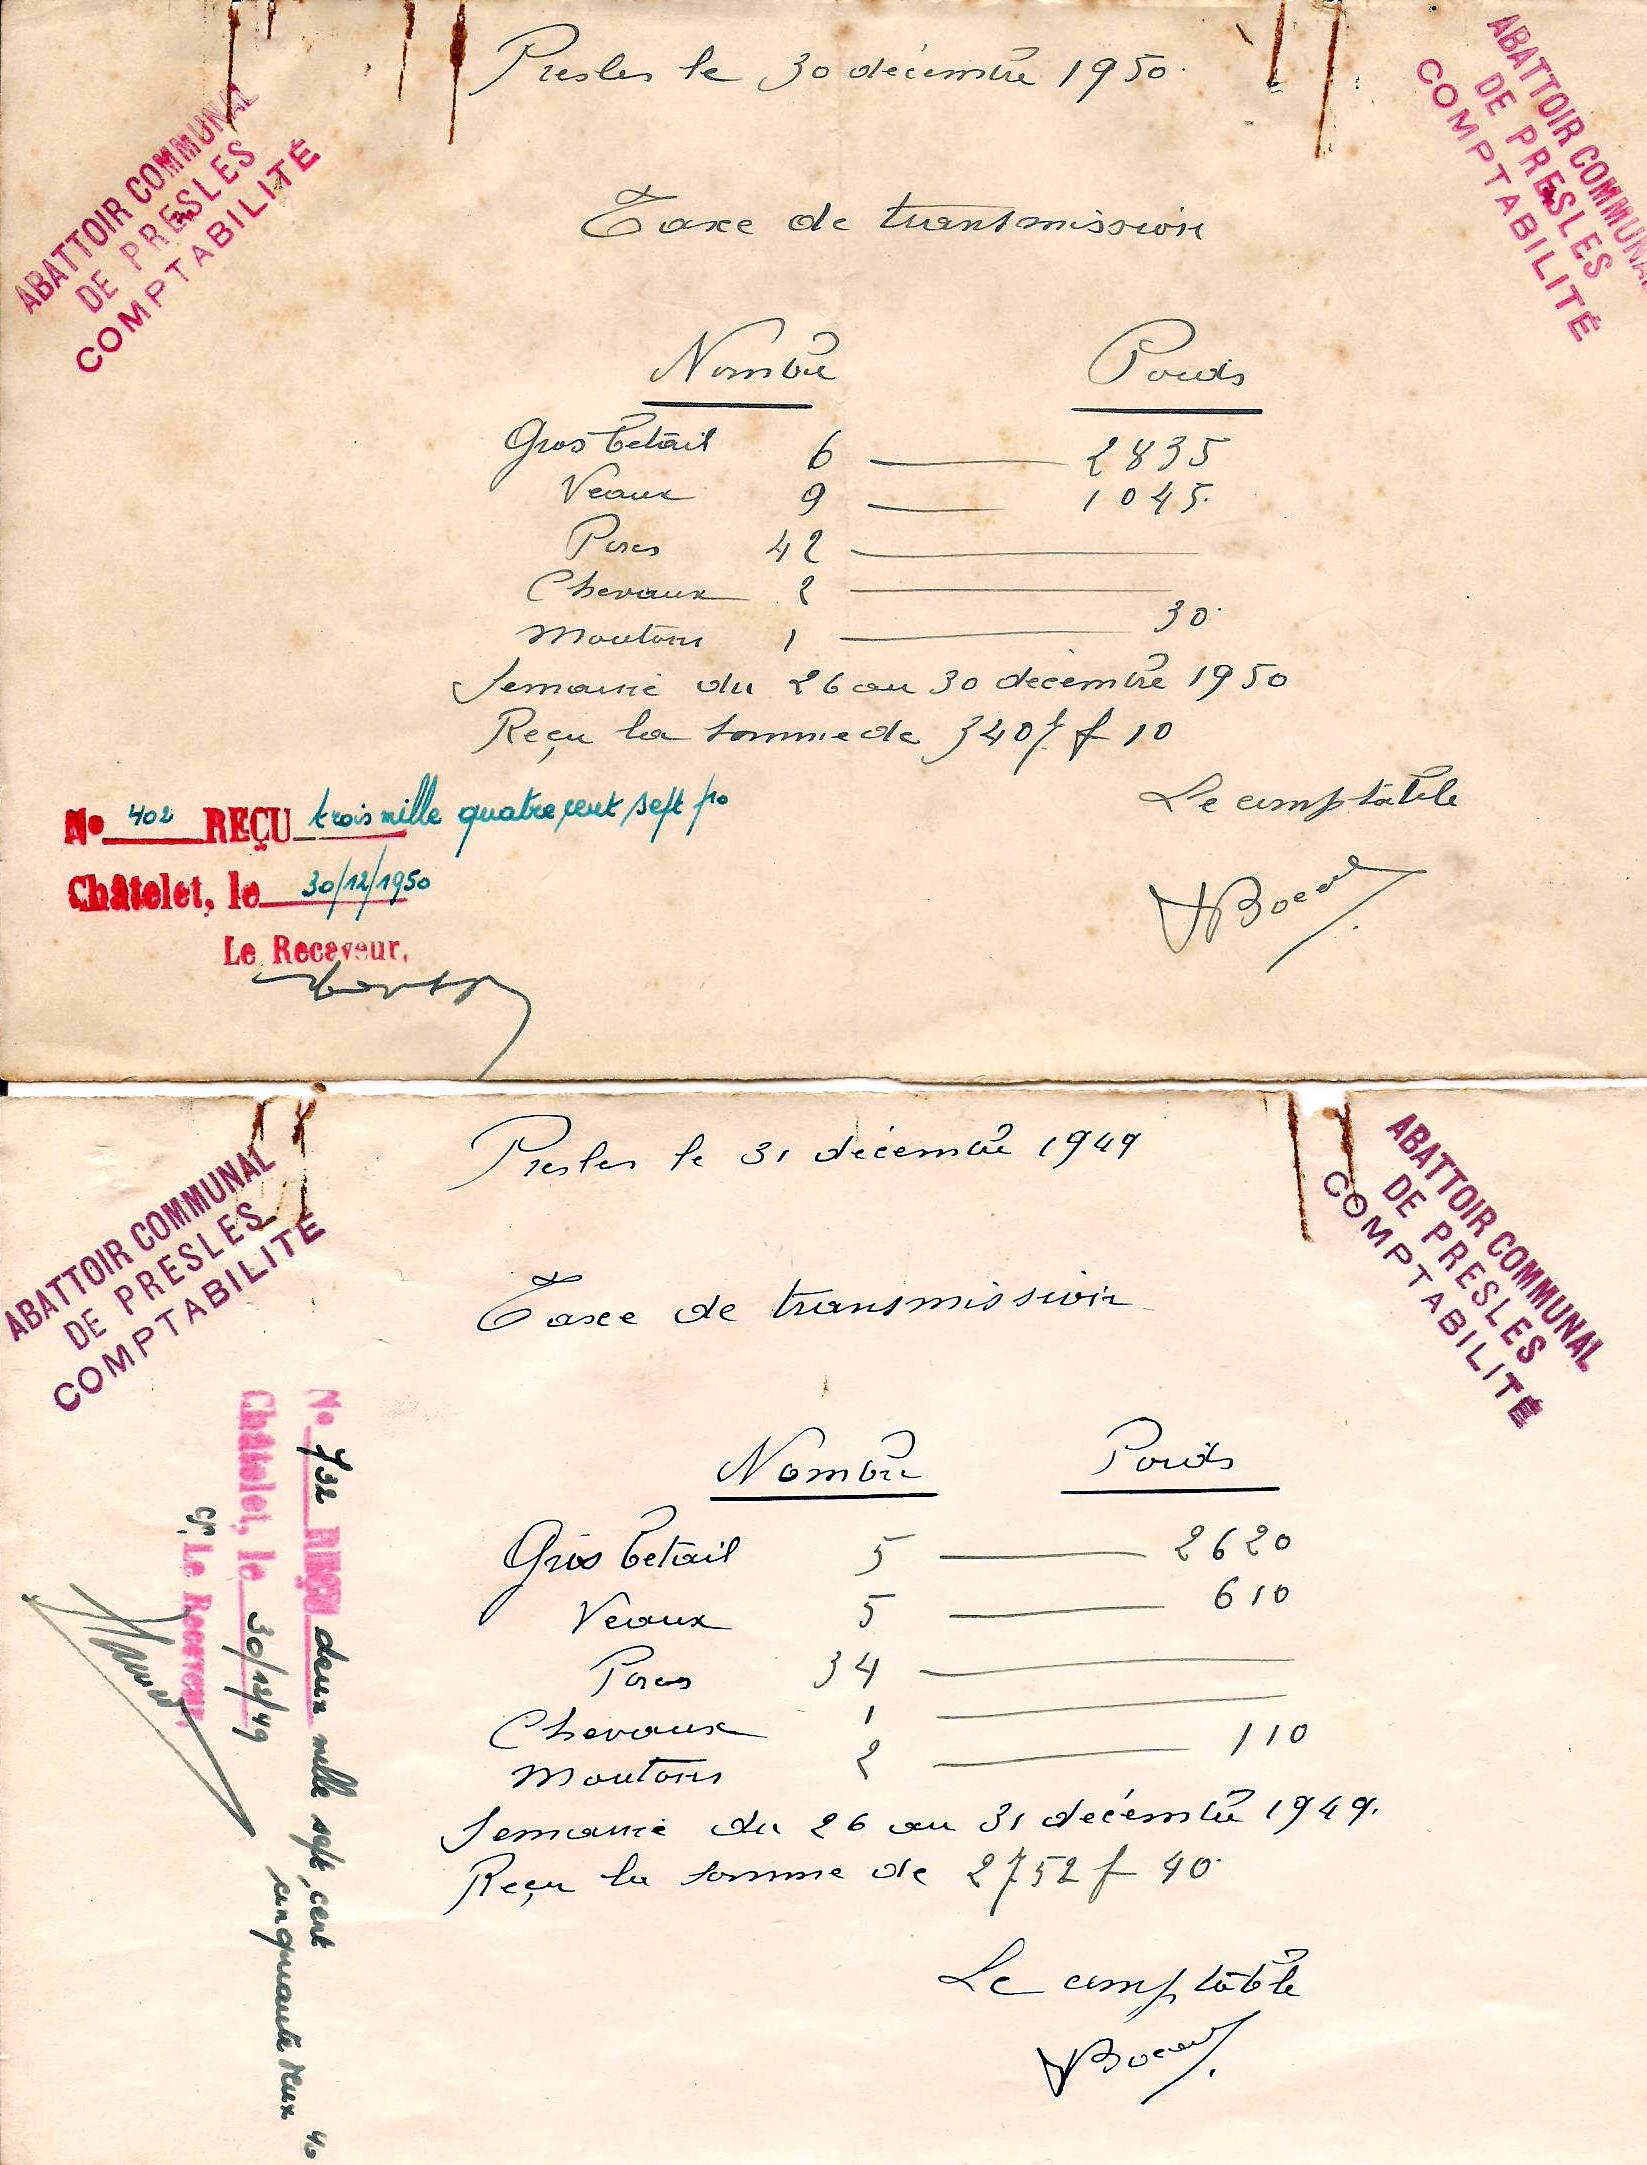 Presles le 30 décembre 1950.
ABATTOIR COMMUNAL
DE PRESLES
COMPTABILITÉ
ABATTOIR COMMUNAL
DE PRESLES
COMPTABILITÉ
Taxe de transmission
Nombre Poids
Gros betail 6 2835
Veaux 9 1045.
Porcs 42
Chevaux 2
Moutons 1 30.
Semaine du 26 au 30 décembre 1950
Reçu la somme de 3407 f 10
Le comptable
No 402 REÇU trois mille quatre cent sept f 10
Châtelet, le 30/12/1950
Le Receveur,
Presles le 31 décembre 1949
ABATTOIR COMMUNAL
DE PRESLES
COMPTABILITÉ
ABATTOIR COMMUNAL
DE PRESLES
COMPTABILITÉ
Taxe de transmission
Nombre Poids
Gros betail 5 2620
Veaux 5 610
Porcs 34
Chevaux 1
Moutons 2 110
Semaine du 26 au 31 décembre 1949.
Reçu la somme de 2752 f 40.
Le comptable
No 732 REÇU deux mille sept cent
cinquante deux 40
Châtelet, le 30/12/49
Le Receveur,